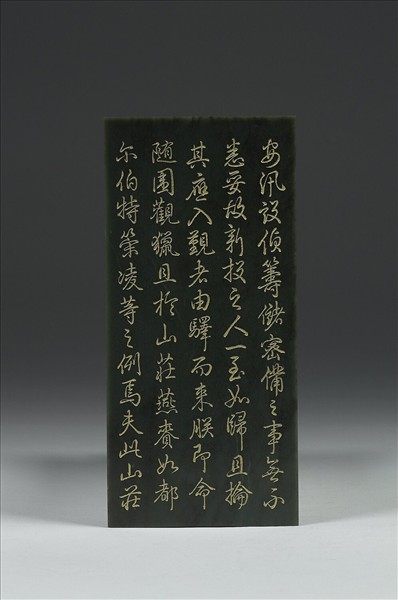 安汛設偵籌儲密備之事無不
悉妥故新投之人一至如歸且掄
其應入覲者由驛而来朕即命
随圍觀獵且於山莊燕賚如都
尔伯特策凌等之例焉夫此山莊